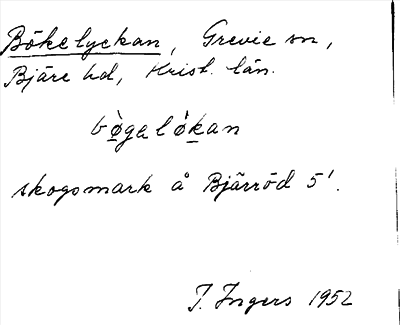 Bökelyckan, Grevie sn,
Bjäre hd, Krist. län.
bø̀gəlø̀kan
skogsmark å Bjärröd 5¹.
I. Ingers 1952